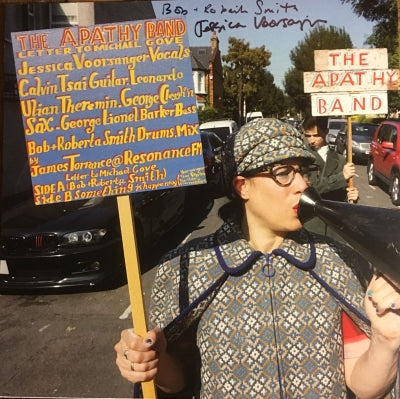 Bob + Roberta Smith
Jessica Voorsanger
THE APATHY BAND
LETTER TO MICHAEL GOVE
Jessica Voorsanger Vocals
Calvin Tsai Guitar. Leonardo
Ulian Theremin. George Cleydin
Sax. George Lionel Barker Bass
Bob + Roberta Smith Drums. Mix
by
James Torrance @ ResonanceFM
Letter to Michael Gove
SIDE A (Bob + Roberta Smith)
SIDE B Something is happening
THE
APATHY
BAND